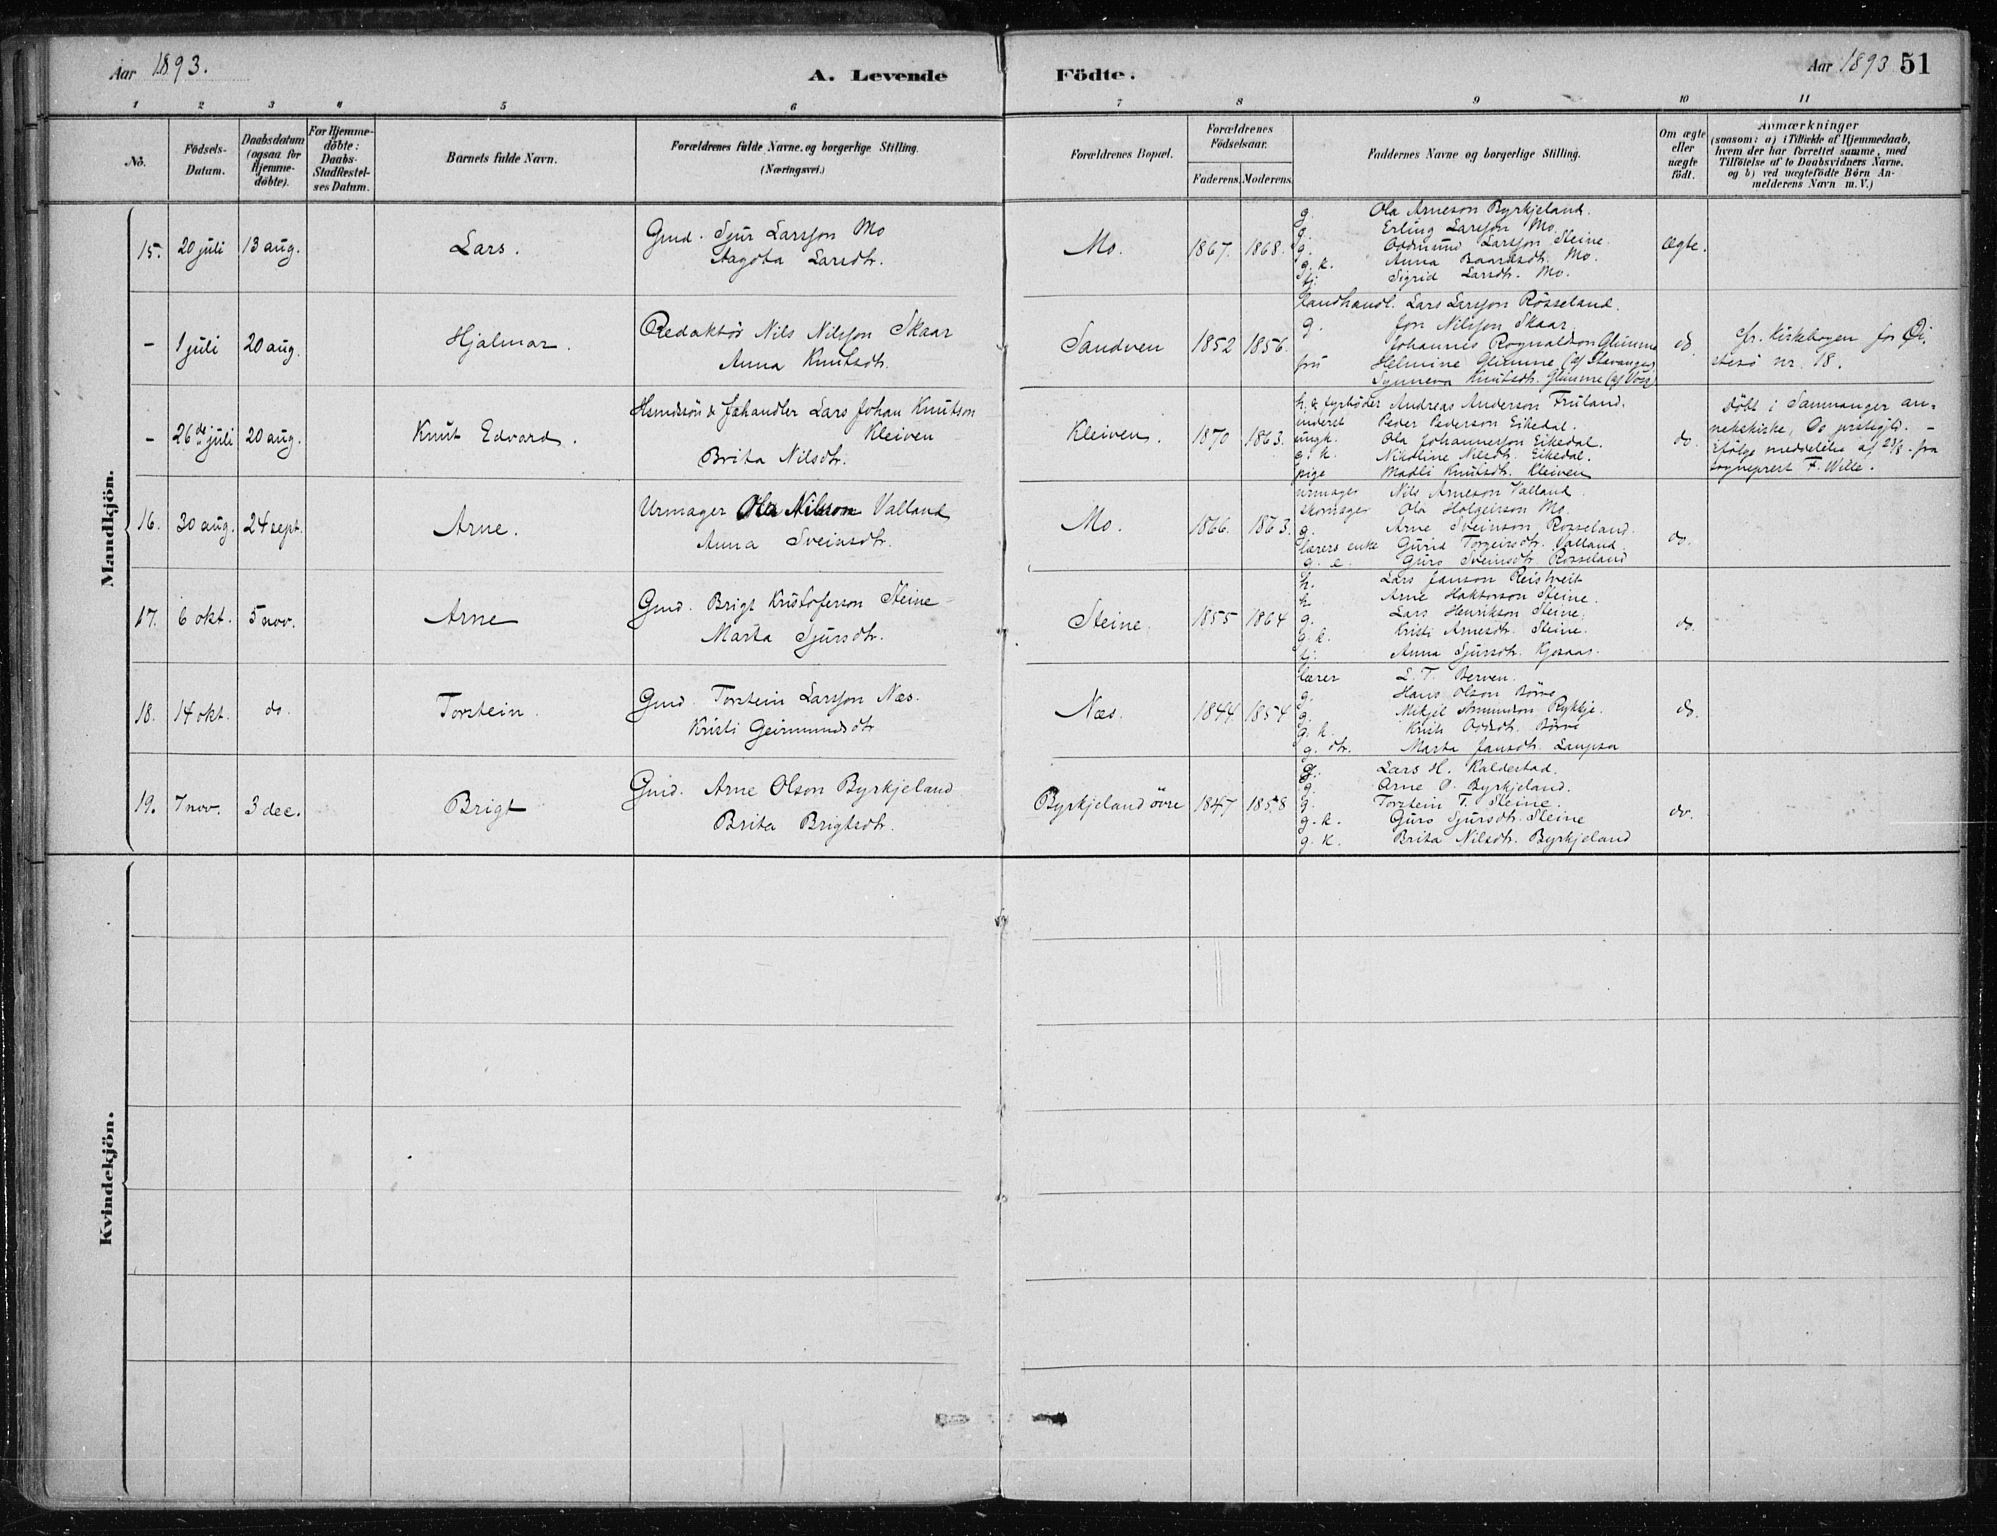 Aar 1893.
A. Levende Födte.
Aar 1893 51
1 2 3 4 5 6 7 8 9 10 11
No.
Födsels-Datum.
Daabsdatum (ogsaa for Hjemme-döbte).
For Hjemme-döbte: Daabs-Stadfestel-ses Datum.
Barnets fulde Navn.
Forældrenes fulde Navne og borgerlige Stilling.
(Næringsvei.)
Forældrenes Bopæl.
Forældrenes Födselsaar.
Faderens. Moderens.
Faddernes Navne og borgerlige Stilling.
Om ægte eller uægte födt.
Anmærkninger
(saasom: a) i Tilfælde af Hjemmedaab,
hvem der har forrettet samme, med
Tilföielse af to Daabsvidners Navne,
og b) ved uægtefödte Börn An-
melderens Navn m. V.)
Mandkjön.
15. 20 juli 13 aug. Lars.
Gmd. Sjur Larsson Mo
Larsdtr.
Mo. 1867. 1868.
g. Ola Arneson Byrkjeland.
g. Erling Larsson Mo.
g. Oddmund Larsson Steine.
g. k. Anna Baardsdtr. Mo.
tj. Sigrid Larsdtr. Mo.
Ægte.
- 1 juli 20 aug. Hjalmar.
Redaktør Nils Nilsson Skaar
Anna Knutsdtr.
Sandven 1852 1856.
Landhandl. Lars Larsson Rösseland.
g. Jon Nilsson Skaar
Johannes Rognaldson Glimme
fru Helmine Glimme (af Stavanger)
Synneva Knutsdtr. Glimme (af Voss)
do.
cfr. Kirkebogen for Öi-
stesö nr. 18.
- 26de juli 20 aug. Knut Edvard.
Husmdsön & Johan Knutson
Kleiven
Brita Nilsdtr.
Kleiven. 1870 1863.
h. & fyrböder Andreas Anderson Fruland.
Peder Pederson Eikedal.
ungk. Ola Johannesson Eikedal.
g. k. Nikoline Nilsdtr. Eikedal.
pige Madli Knutsdtr. Kleiven
do.
Döbt i Samnanger an-
nekskirke, Os prstgjld. -
ifölge meddelelse af 23/8 fra
sogneprest F. Wille.
16. 30 aug. 24 sept. Arne.
Urmager Ola Nilsson Valland
Anna Sveinsdtr.
Mo. 1866. 1863.
urmager Nils Arneson Valland.
skomager Ola Holgeirson Mo.
g. Arne Sveinson Rosseland.
lærers enke Gurid Torgeirsdtr. Valland.
g. e. Guro Sveinsdtr. Rosseland
do.
17. 6 okt. 5 nov. Arne
Gmd. Brigt Kristoferson Steine
Marta Sjursdtr.
Steine. 1855 1864
h. Lars Janson Reistveit
h. Arne Haktorson Steine.
g. Lars Henrikson Steine.
g. k. Kristi Arnesdtr. Steine.
tj. Anna Sjursdtr. Kjosaas.
do.
18. 14 okt. do. Torstein.
Gmd. Torstein Larsson Næs.
Kristi Geirmundsdtr
Næs. 1844 1854
lærer L. T. Berven.
g. Hans Olson Börve
g. Mikjel Amundson Rykkje.
g. k. Kristi Oddsdtr. Börve
g. dtr. Marta Jansdtr. Laupsa
do.
19. 7 nov. 3 dec. Brigt
Gmd. Arne Olson Byrkjeland
Brita Brigtsdtr.
Byrkjeland övre 1847 1858
g. Lars H. Kaldestad.
g. Arne O. Byrkjeland.
g. Torstein T. Steine.
g. k. Guro Sjursdtr. Steine
g. k. Brita Nilsdtr. Byrkjeland
do.
Kvindekjön.